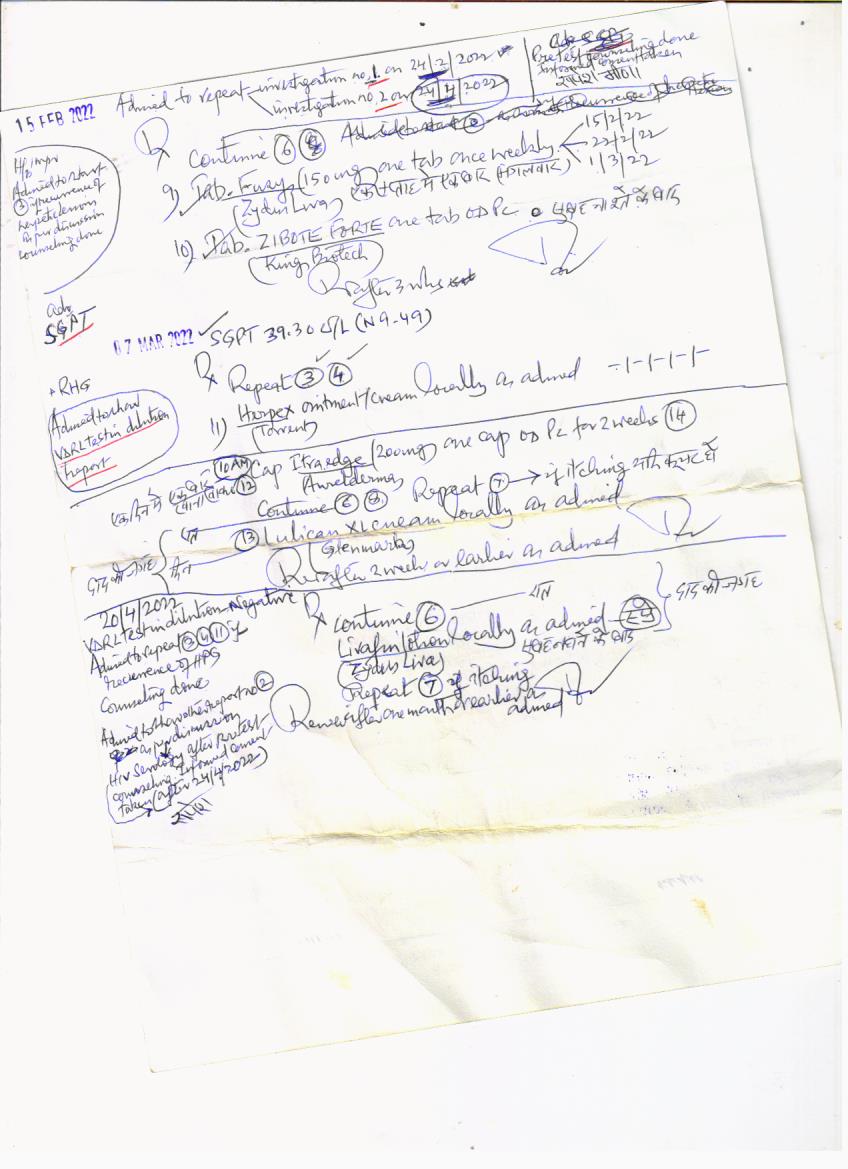 15 FEB 2022
Advised to repeat investigation no. 1. on 24/2/2022
investigation no. 2 on 24/4/2022
Pretest counseling done
Informed consent taken
H/o impr
Advised to start
③ if recurrence of
herpetic lesion
as per discussion
counseling done
Rx Continue ⑥
9) Tab. Fusys (150 mg) one tab once weekly 15/2/22
22/2/22
1/3/22
(Zydus Liva)
10) Tab. ZIBOTE FORTE one tab OD PC सुबह नाश्ते के बाद
(King Biotech)
R after 3 wks
adv
SGPT
07 MAR 2022 SGPT 39.30 U/L (N 9-49)
Rx Repeat ③ ④
RHG
11) Herpex ointment/cream locally as advised -|-|-|-|-
(Torrent)
Advised to show
VDRL test in dilution
report
10 AM
⑫ Cap Itraedge (200mg) one cap OD PC for 2 weeks ⑭
Continue ⑥ ⑧ Repeat ⑦ → if itching
⑬ Lulican XL cream locally as advised
(Glenmark)
दाद की जगह
R after 2 week or earlier as advised
20/4/2022
VDRL test in dilution - Negative
Advised to repeat ③ ④ ⑪ if
recurrence of HPG
Counseling done
Advised to show other report no ②
as per discussion
HIV Serology after Pretest
counseling Informed consent
taken (after 24/4/2022)
Rx Continue ⑥
Livafin lotion locally as advised
(Zydus Liva) सुबह नहाने के बाद
दाद की जगह
Repeat ⑦ if itching
Review after one month or earlier as
advised